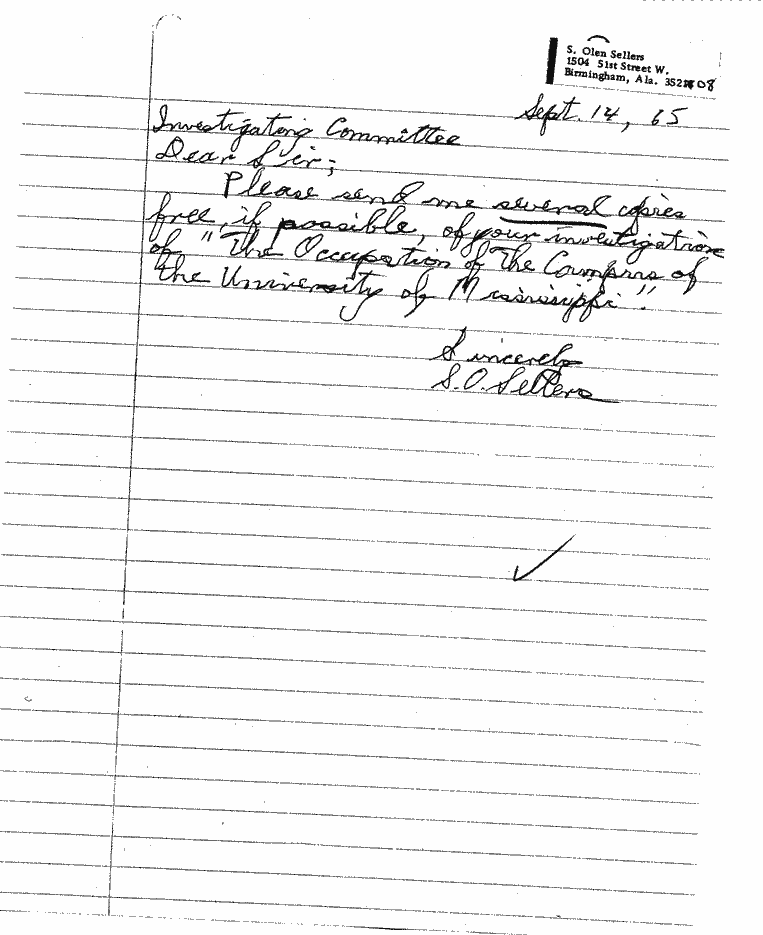 S. Olen Sellers
1504 51st Street W.
Birmingham, Ala. 35208
Sept. 14, 65
Investigating Committee
Dear Sir;
Please send me several copies
free, if possible, of your investigation
of "The Occupation of The Campus of
the University of Mississippi".
Sincerely
S.O. Sellers